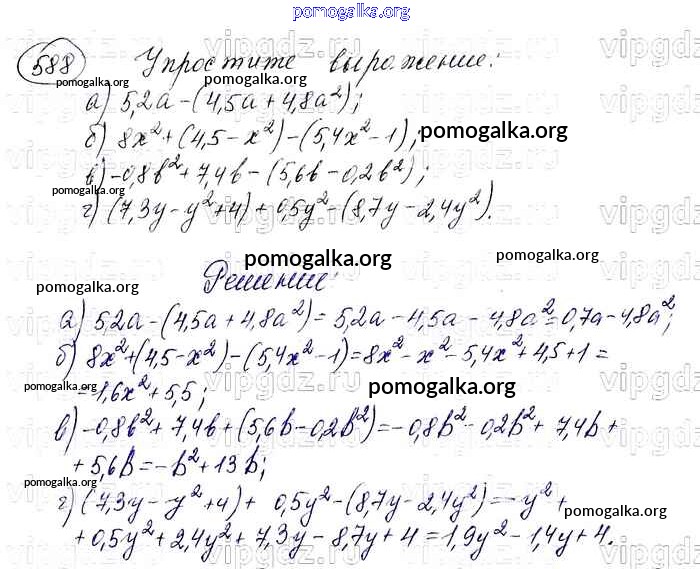 pomogalka.org
588 Упростите выражение:
pomogalka.org pomogalka.org
а) 5,2a-(4,5a+4,8a²);
б) 8x²+(4,5-x²)-(5,4x²-1); pomogalka.org
в) -0,8b²+7,4b-(5,6b-0,2b²);
pomogalka.org pomogalka.org
г) (7,3y-y²+4)+0,5y²-(8,7y-2,4y²).
vipgdz.ru
pomogalka.org pomogalka.org
Решение:
pomogalka.org
а) 5,2a-(4,5a+4,8a²)=5,2a-4,5a-4,8a²=0,7a-4,8a²;
б) 8x²+(4,5-x²)-(5,4x²-1)=8x²-x²-5,4x²+4,5+1=
=1,6x²+5,5; pomogalka.org
в) -0,8b²+7,4b+(5,6b-0,2b²)=-0,8b²-0,2b²+7,4b+
+5,6b=-b²+13b;
pomogalka.org pomogalka.org
г) (7,3y-y²+4)+0,5y²-(8,7y-2,4y²)=-y²+
pomogalka.org
+0,5y²+2,4y²+7,3y-8,7y+4=1,9y²-1,4y+4.
pomogalka.org